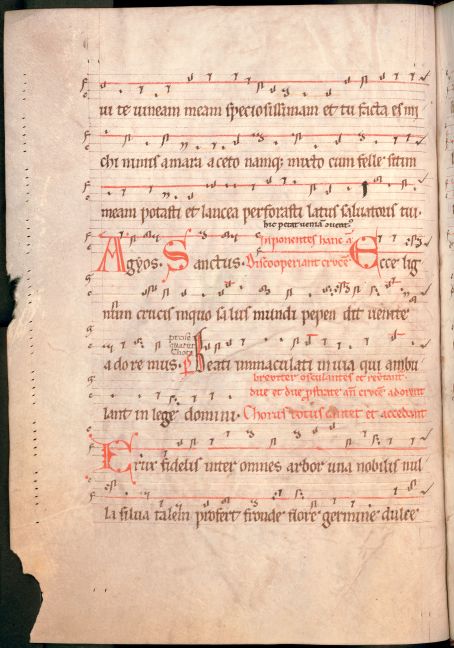 ui te uineam meam speciosissimam et tu facta es mi
chi nimis amara aceto namq; mixto cum felle sitim
meam potasti et lancea perforasti latus saluatoris tui.
hic petat uenia
Agyos. Sanctus. Discooperiant cruce Ecce lig
num crucis in quo salus mundi pepen dit uenite
adore mus. Beati immaculati in uia qui ambu
breuiter osculantes et
due et due pstrate an cruce adorent
lant in lege domini. Chorus totus cantet et accedant
Crux fidelis inter omnes arbor una nobilis nul
la silua talem profert fronde flore germine dulce